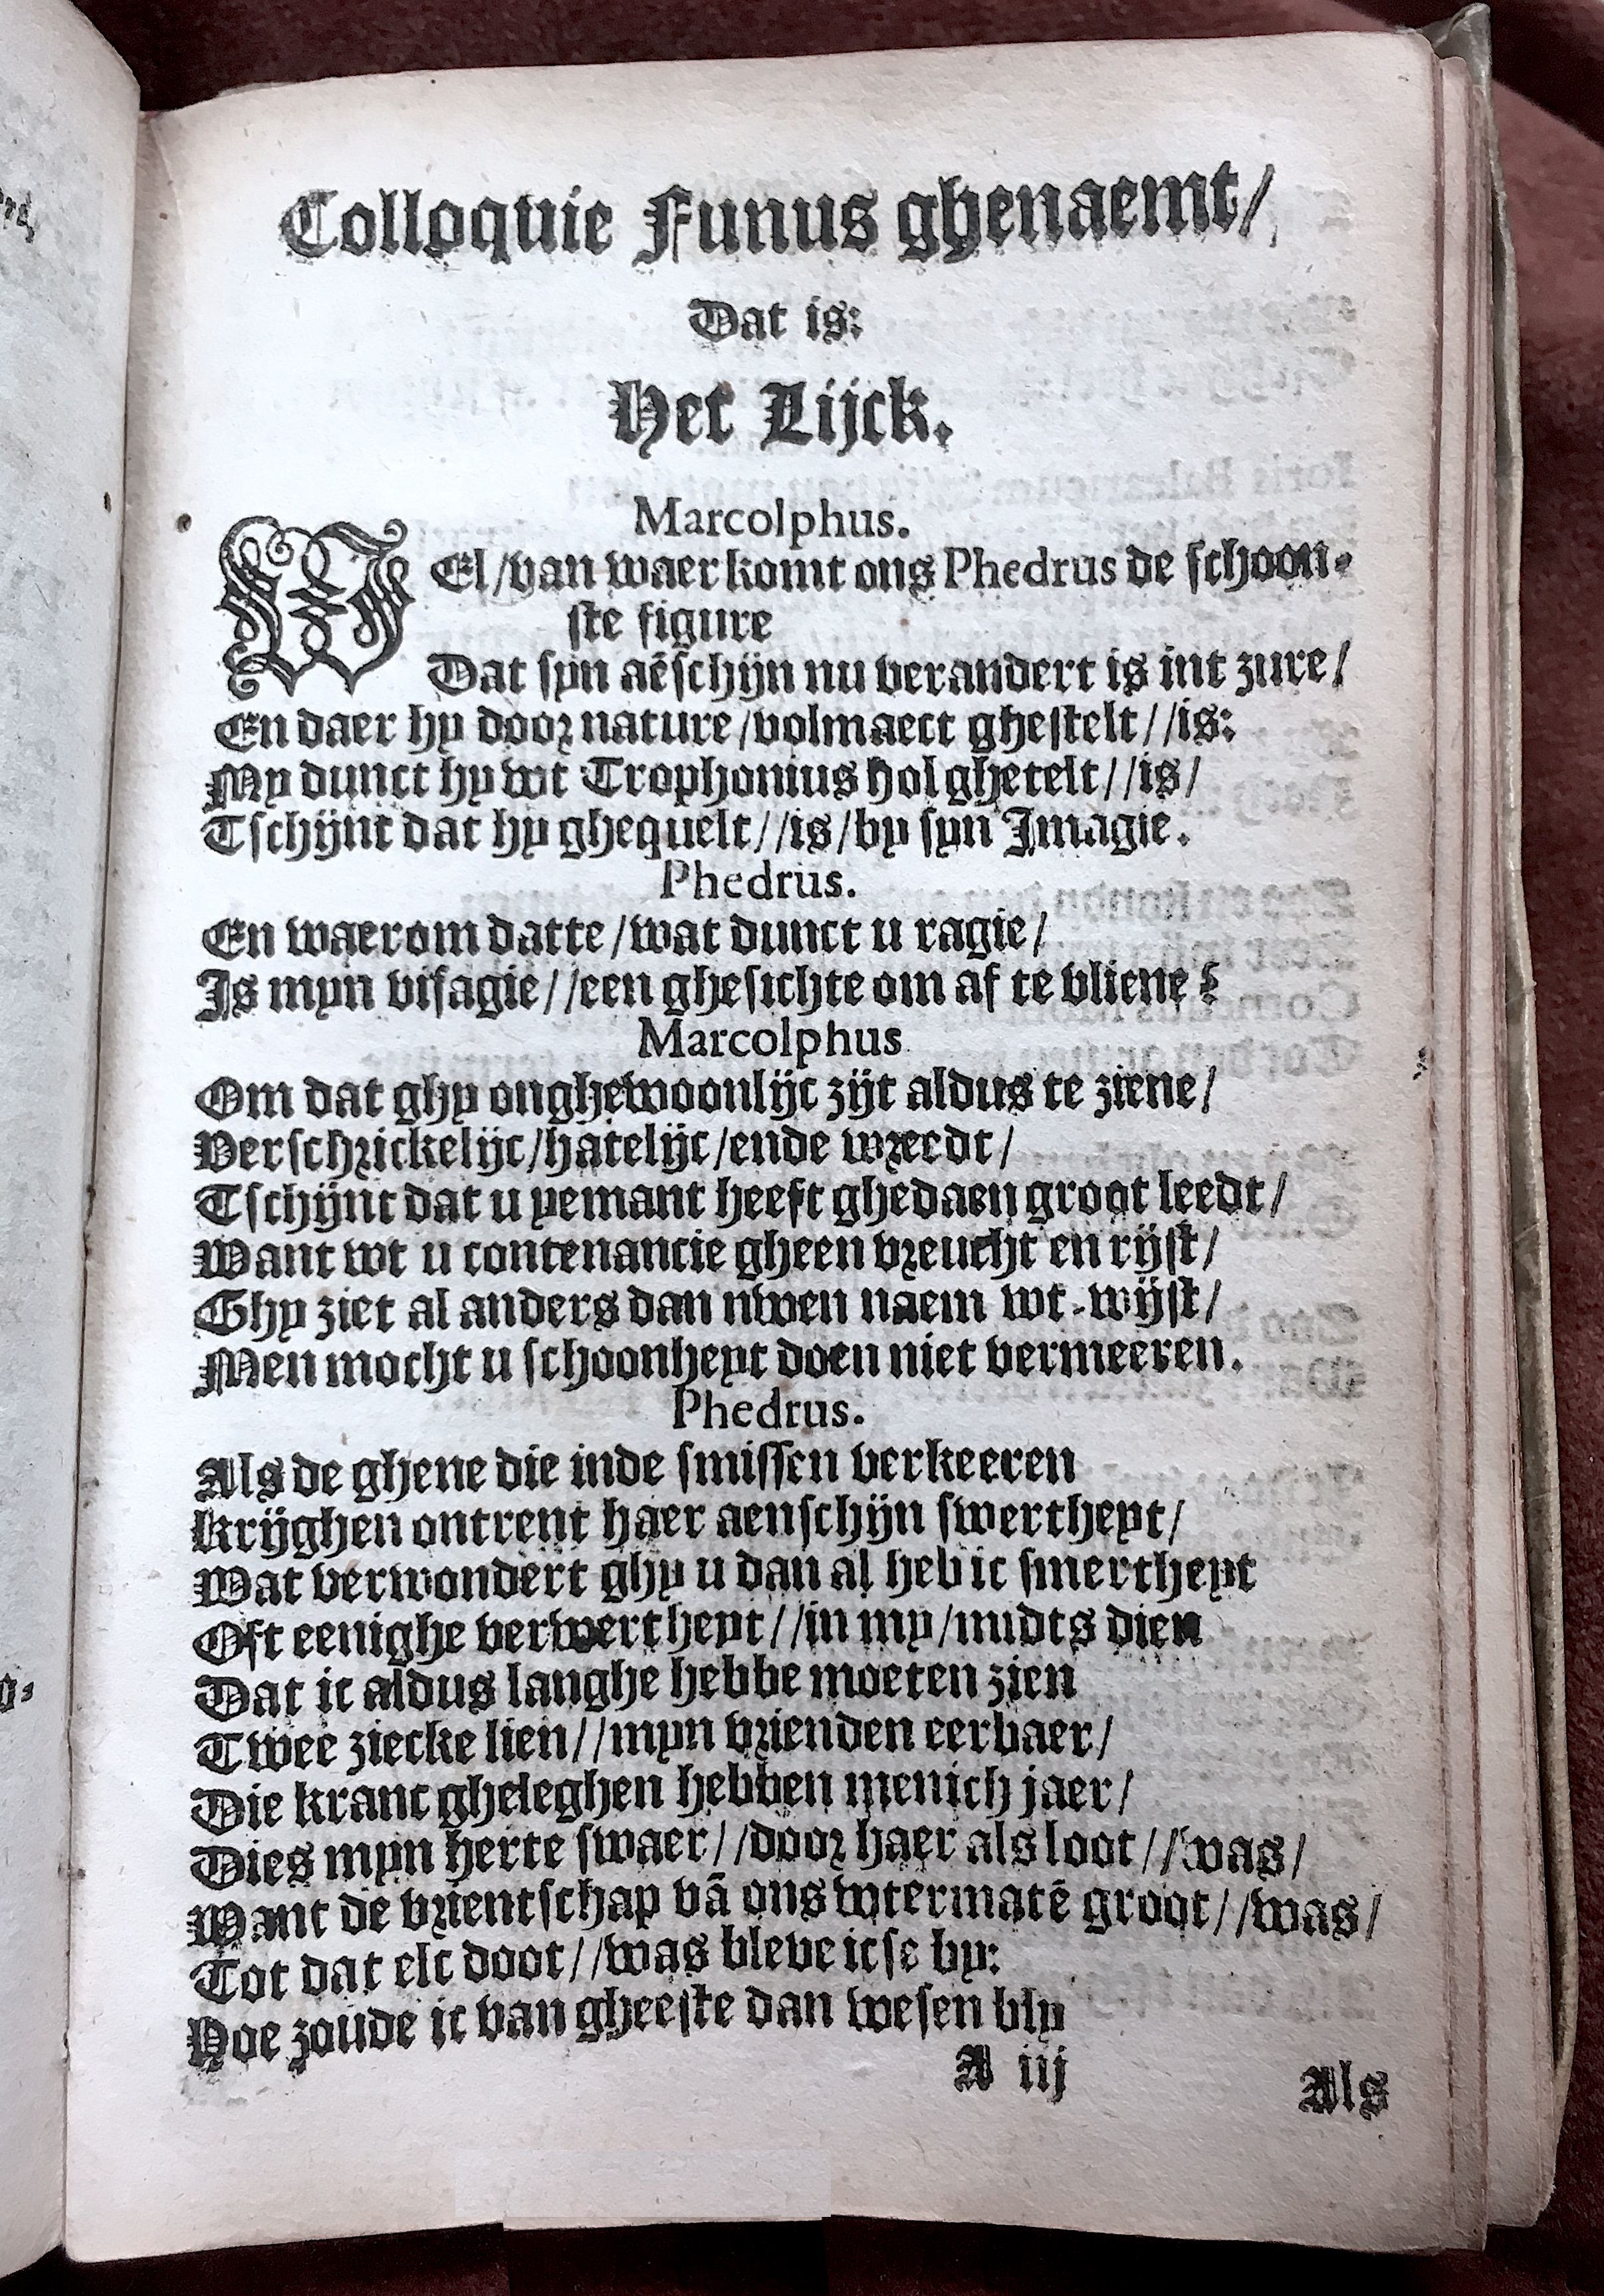 Colloquie Funus ghenaemt/
Dat is:
Het Lijck.
Marcolphus.
WEl/van waer komt ons Phedrus de schoon-
ste figure
Dat syn aēschijn nu verandert is int zure/
En daer hy door nature/volmaect ghestelt//is:
My dunct hy wt Trophonius hol ghetelt//is/
Tschijnt dat hy ghequelt//is/by syn Imagie.
Phedrus.
En waerom datte/wat dunct u ragie/
Is myn visagie//een ghesichte om af te vliene?
Marcolphus
Om dat ghy onghewoonlijc zijt aldus te ziene/
Verschrickelijc/hatelijc/ende wreedt/
Tschijnt dat u yemant heeft ghedaen groot leedt/
Want wt u contenancie gheen vreucht en rijst/
Ghy ziet al anders dan uwen naem wt-wijst/
Men mocht u schoonheyt doen niet vermeeren.
Phedrus.
Als de ghene die inde smissen verkeeren
Krijghen ontrent haer aenschijn swertheyt/
Wat verwondert ghy u dan al heb ic smertheyt
Oft eenighe verwertheyt//in my/midts dien
Dat ic aldus langhe hebbe moeten zien
Twee ziecke lien//myn vrienden eerbaer/
Die kranc gheleghen hebben menich jaer/
Dies myn herte swaer//door haer als loot//was/
Want de vrientschap vā ons wtermatē groot//was/
Tot dat elc doot//was bleve icse by:
Hoe zoude ic van gheeste dan wesen bly
A iij
Als